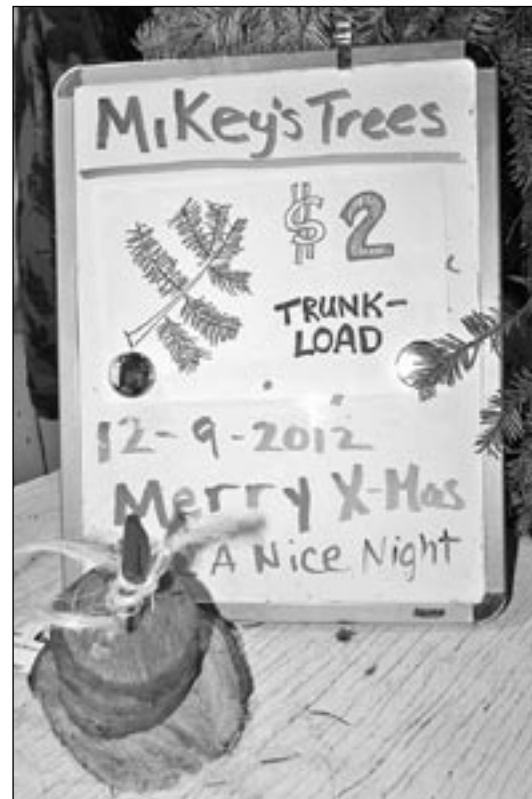 MiKey's Trees
$2
TRUNK-
LOAD
12-9-2012
Merry X-Mas
A Nice Night